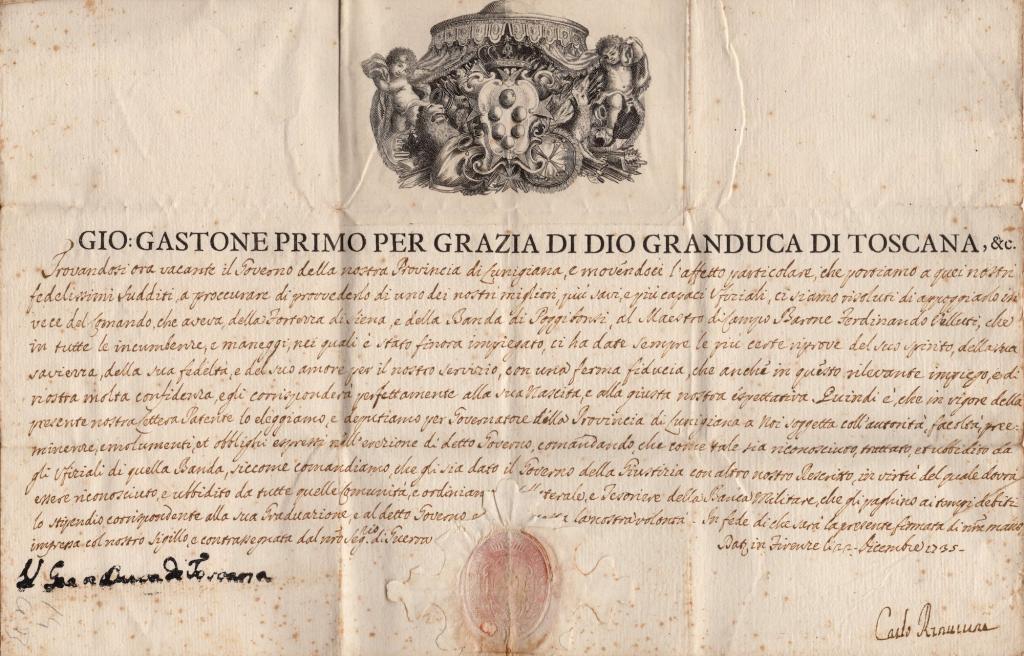 GIO: GASTONE PRIMO PER GRAZIA DI DIO GRANDUCA DI TOSCANA, &c.
Trovandosi ora vacante il Governo della nostra Provincia di Lunigiana, e movendoci l'affetto particolare, che portiamo a quei nostri
fedelissimi sudditi, a proccurare di provvederlo di uno dei nostri migliori, più savi, e più capaci Ufiziali, ci siamo risoluti di appoggiarlo in
vece del Comando, che aveva, della Fortezza di Siena, e della Banda di Poggibonsi, al Maestro di Campo Barone Ferdinando che
in tutte le incumbenze, e maneggi, nei quali è stato finora impiegato, ci ha date sempre le più certe riprove del suo spirito, della sua
saviezza, della sua fedeltà, e del suo amore per il nostro servizio, con una ferma fiducia, che anche in questo rilevante impiego, e di
nostra molta confidenza, egli corrisponderà perfettamente alla sua Nascita, e alla giusta nostra espettativa. Quindi è, che in vigore della
presente nostra Lettera Patente lo eleggiamo, e deputiamo per Governatore della Provincia di Lunigiana a Noi soggetta coll'autorità, facoltà, pree-
minenze, emolumenti, et obblighi espressi nell'erezione di detto Governo, comandando, che come tale sia riconosciuto, trattato, et ubbidito da
gli Ufiziali di quella Banda, siccome comandiamo, che gli sia dato il Governo della Giustizia con altro nostro Rescritto, in virtù del quale dovrà
essere riconosciuto, e ubbidito da tutte quelle Comunità, e ordiniam terale, e Tesoriere della Banca Militare, che gli paghino ai tempi debiti
lo stipendio corrispondente alla sua Graduazione, e al detto Governo e la nostra volontà. In fede di che sarà la presente firmata di nra mano,
impressa col nostro Sigillo, e contrassegnata dal nro Segrio. di Guerra
Dat. in Firenze Dicembre 1735.
Il Gran Duca di Toscana
Carlo Rinuccini